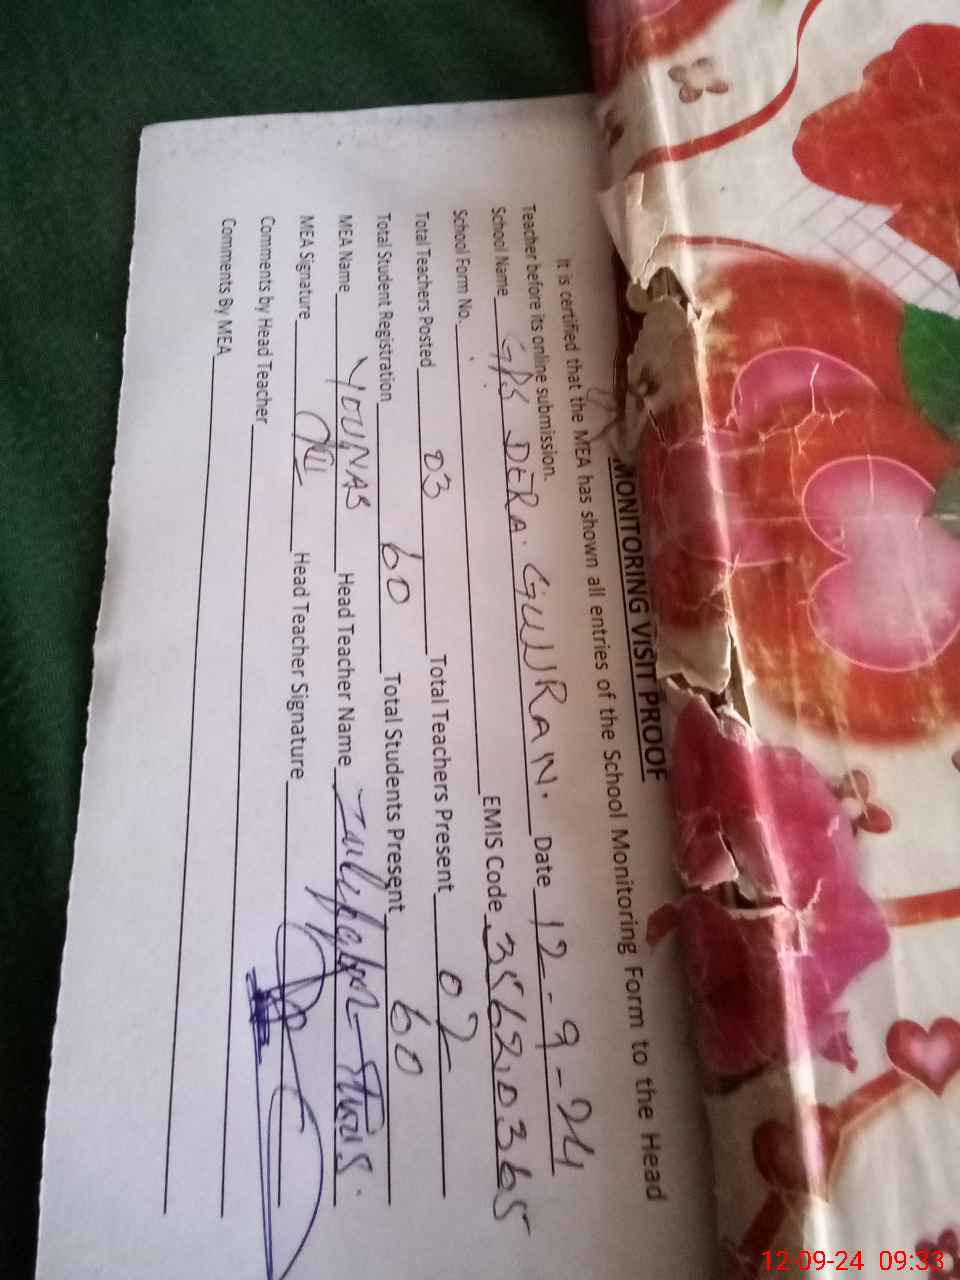 MONITORING VISIT PROOF
It is certified that the MEA has shown all entries of the School Monitoring Form to the Head
Teacher before its online submission.
School Name GPS DERA. GUJJRAN. Date 12-9-24
School Form No. EMIS Code 35620365
Total Teachers Posted 03 Total Teachers Present 02
Total Student Registration 60 Total Students Present 60
MEA Name YOUNAS Head Teacher Name
MEA Signature Head Teacher Signature
Comments by Head Teacher
Comments By MEA
12-09-24 09:33